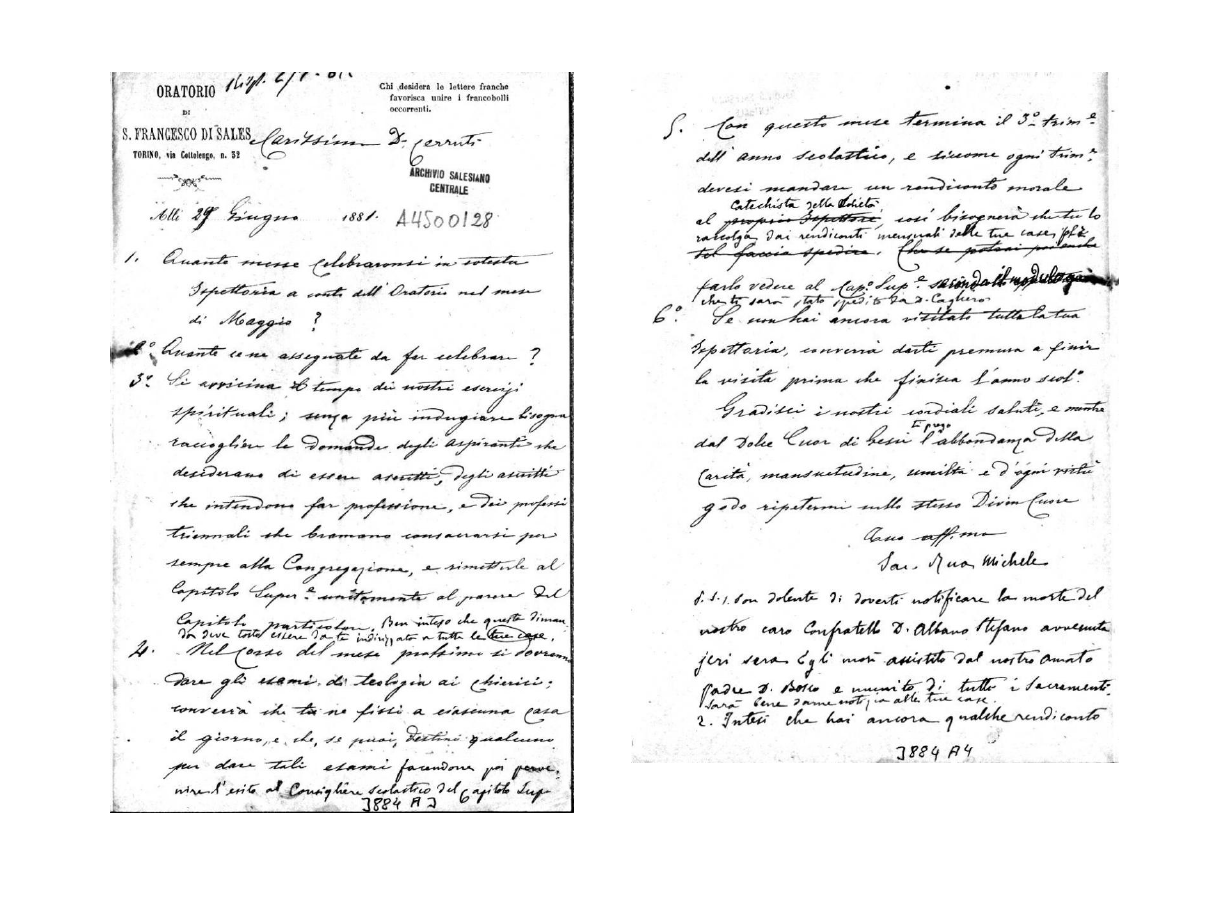 ORATORIO
DI
S. FRANCESCO DI SALES
TORINO, via Cottolengo, n. 32
Chi desidera le lettere franche
favorisca unire i francobolli
occorrenti.
Carissimo D. Cerruti
ARCHIVIO SALESIANO
CENTRALE
Alli 29 Giugno 1881.
A4500128
1. Quante messe celebraronsi in cotesta
Ispettoria a conto dell'Oratorio nel mese
di Maggio?
2° Quante ce ne assegnate da far celebrare?
3° Si avvicina il tempo dei nostri esercizi
spirituali; senza più indugiare bisogna
raccogliere le domande degli aspiranti che
desiderano di essere ascritti, degli ascritti
che intendono far professione, e dei professi
triennali che bramano consacrarsi per
sempre alla Congregazione, e rimetterle al
Capitolo Super.e unitamente al parere del
Capitolo particolare. Ben inteso che queste diman
de deve tosto essere da te indirizzato a tutte le tue case.
4. Nel corso del mese prossimo si dovranno
dare gli esami di teologia ai chierici;
converrà che tu ne fissi a ciascuna casa
il giorno, e che, se puoi, destini qualcuno
per dare tali esami facendone poi perve-
nire l'esito al Consigliere scolastico del Capitolo Sup
3884 A3
5. Con questo mese termina il 3° trim.e
dell'anno scolastico, e siccome ogni trim.e
devesi mandare un rendiconto morale
Catechista della Società
al proprio Ispettore, così bisognerà che tu lo
raccolga dai rendiconti mensuali delle tue case, poi
farlo vedere al Cap.o Sup.e secondo il modulo
che ti sarà stato spedito da D. Cagliero.
6° Se non hai ancora visitati tutta la tua
Ispettoria, converrà darti premura a finir
la visita prima che finisca l'anno scol.o
Gradisci i nostri cordiali saluti, e mentre
ti prego
dal Dolce Cuor di Gesù l'abbondanza della
carità, mansuetudine, umiltà e d'ogni virtù
godo ripetermi nello stesso Divin Cuore
Tuo aff.mo
Sac. Rua Michele
P.S. 1. Son dolente di doverti notificare la morte del
nostro caro Confratello D. Albano Stefano avvenuta
jeri sera. Egli morì assistito dal nostro amato
padre D. Bosco e munito di tutti i Sacramenti.
Sarà bene darne notizia alle tue case.
2. Intesi che hai ancora qualche rendiconto
3884 A4